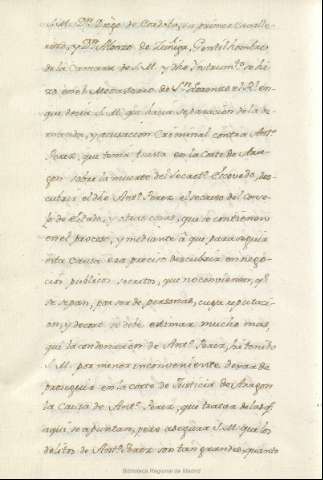 S.M. Dn. Diego de Cordoba, su primer Cavalle-
rizo, y Dn. Alonzo de Zuñiga, Gentilhombre
de la Camara de S.M. y dho Instrumto. se hi-
zo en el Monasterio de Sn. Lorenzo el Rl. en
que decia S.M. que hacia separacion de la de-
manda, y acusacion Criminal contra Anto.
Perez, que tenia puesta en la Corte de Ara-
gon sobre la muerte del Secreto. Escovedo, des-
cubrir el dho Anto. Perez el secreto del Conse-
jo de Estado, y otras cosas, que se contienen
en el proceso, y mediante à que para seguir
esta Causa era preciso descubrir en nego-
cios publicos secretos, que no convienen, qe.
se sepan, por ser de personas, cuya reputaci-
on, y decoro se debe estimar mucho mas,
que la condenacion de Anto. Perez, ha tenido
S.M. por menor inconveniente dexar de
proseguir en la corte de Justicia de Aragon
la Causa de Anto. Perez, que tratar de las qe.
aqui se apuntan, pero asegura S.M. que los
delitos de Anto. Perez son tan grandes, quanto
Biblioteca Regional de Madrid